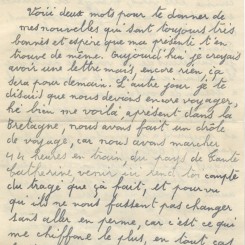 Voici deux mots pour te donner de
mes nouvelles qui sont toujours très
bonnes et espère que ma présente t'en
trouve de même. Aujourd'hui je croyais
avoir une lettre mais, encore rien ça
sera pour demain. L'autre jour je te
disais que nous devions encore voyager,
hé bien me voilà à présent dans la
Bretagne, nous avons fait un drôle
de voyage, car nous avons marcher
44 heures en train, du pays de Sainte
Catherine venir ici rends toi compte
du trage que çà fait, et pourvu
qu'ils ne nous fassent pas changer
sans aller en perme, car c'est ce qui
me chiffonne le plus, en tout cas